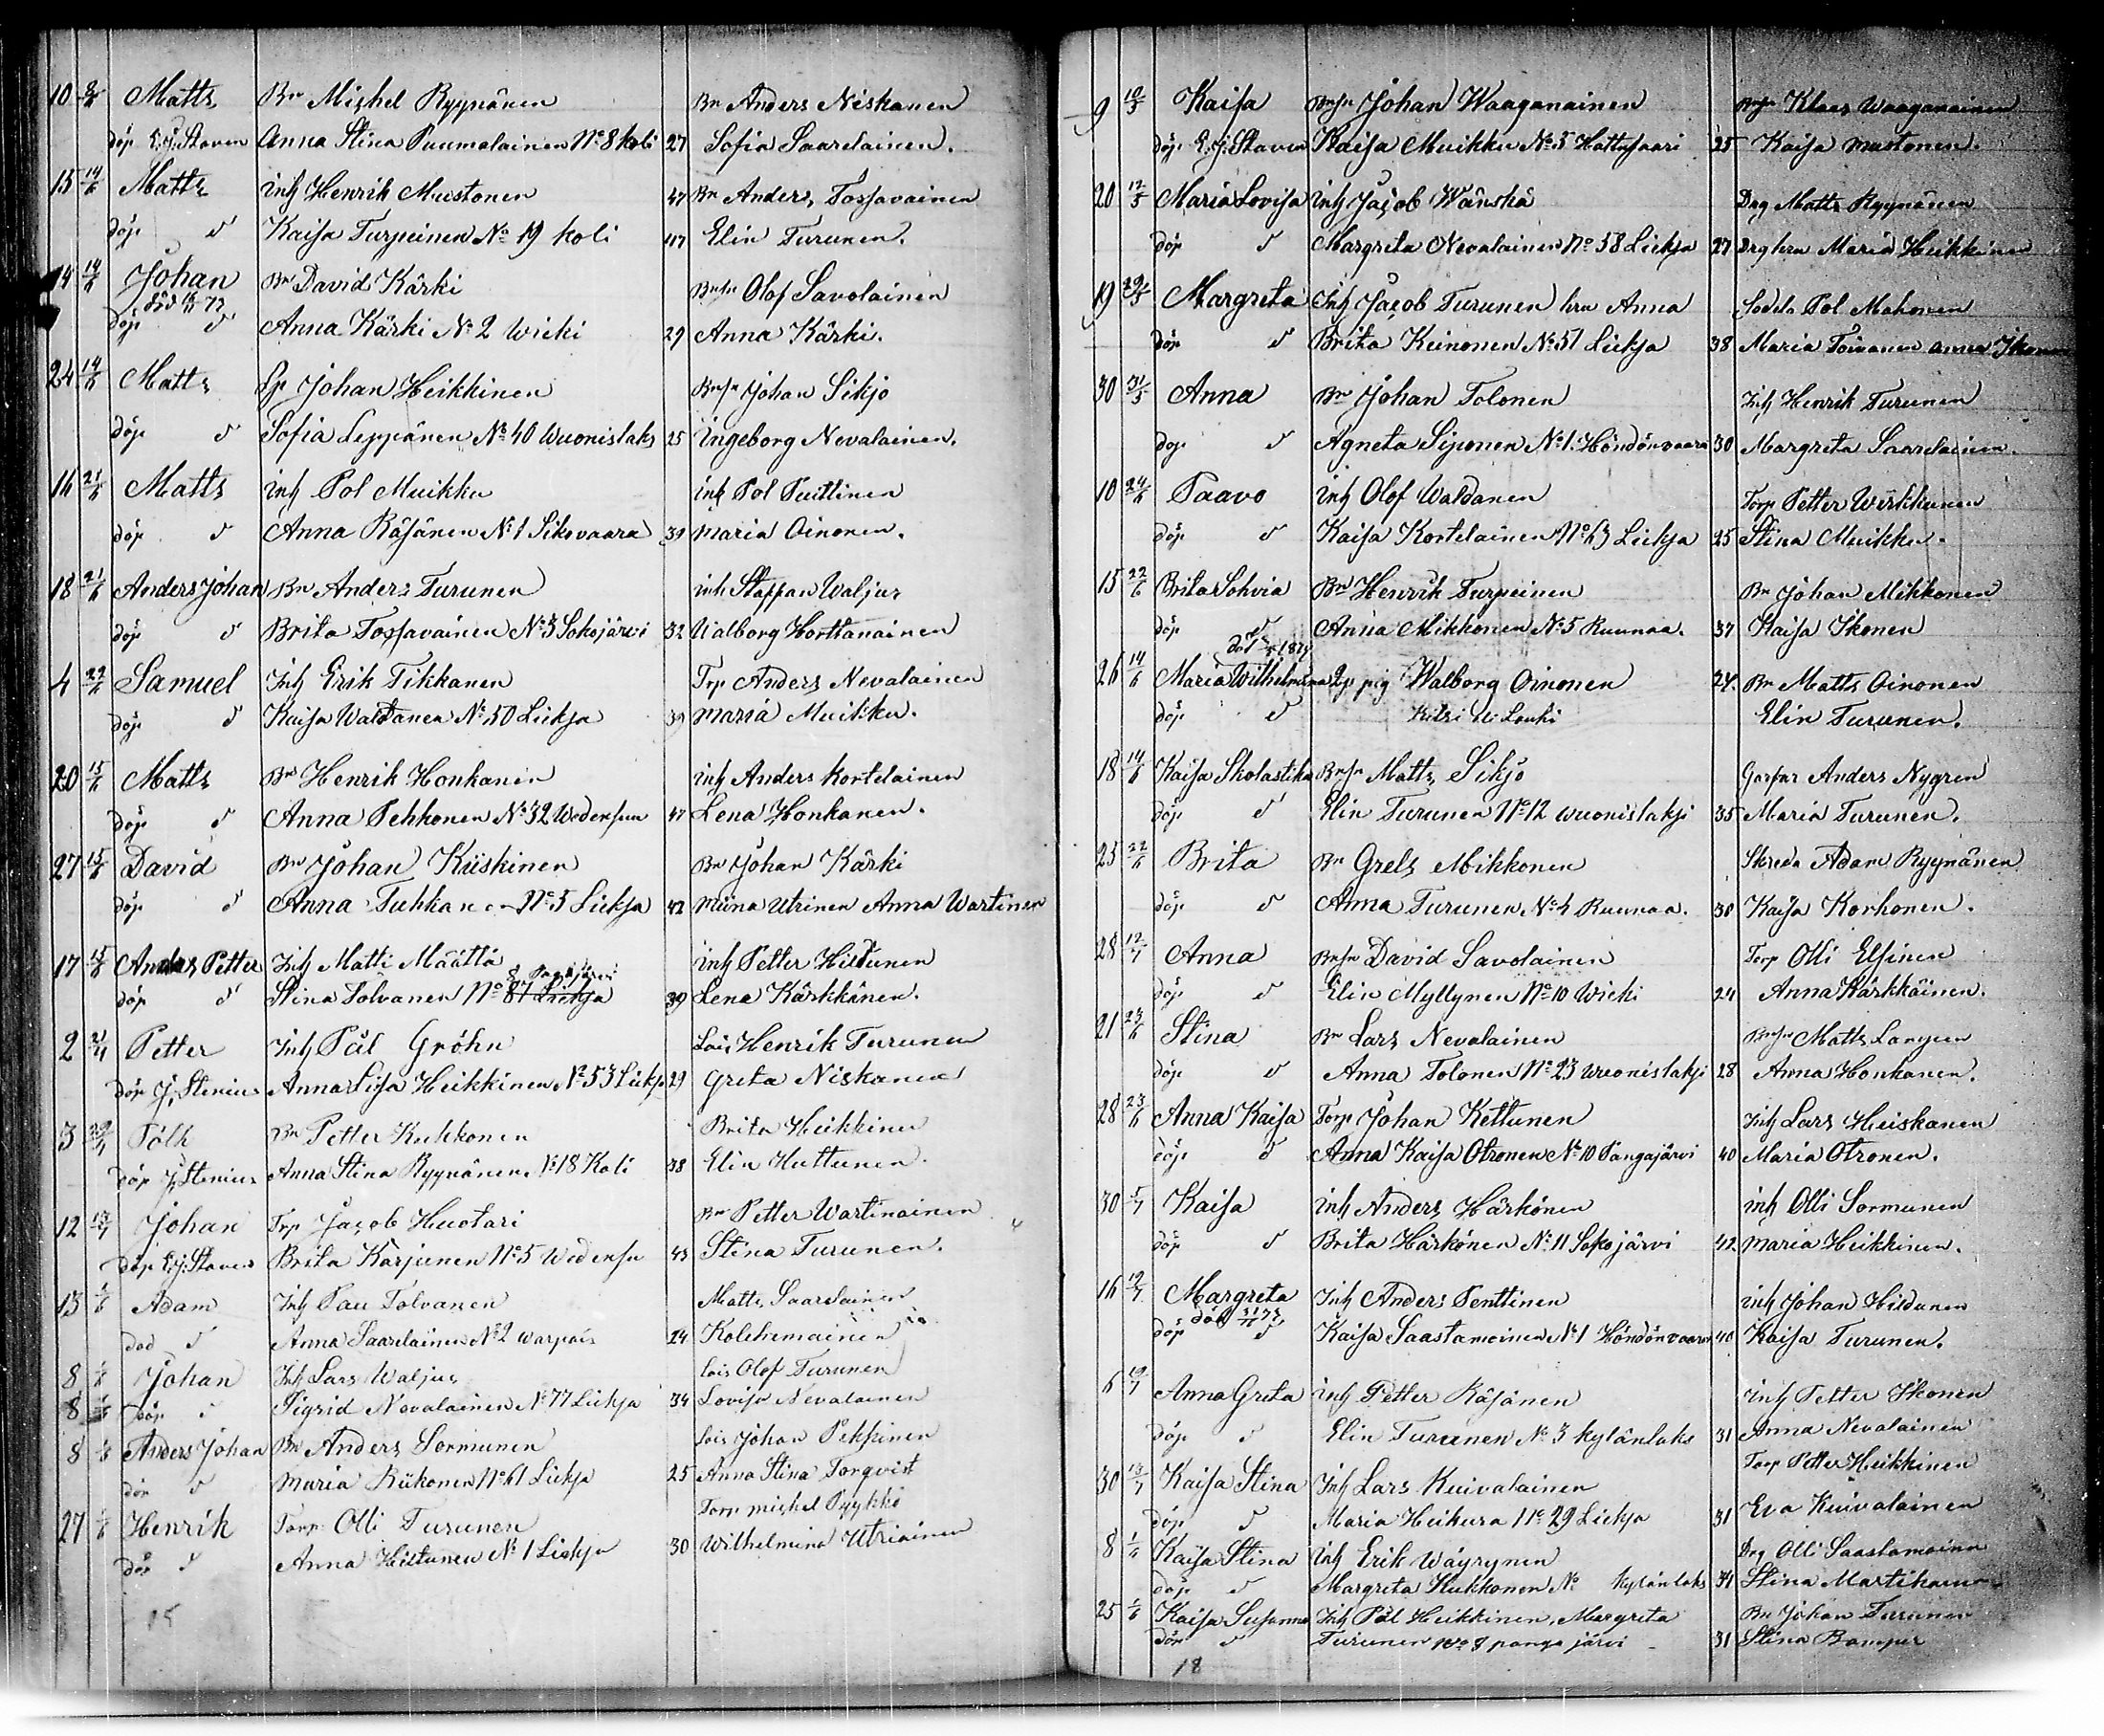 10 8/6 Matts Bn Mishel Ryynänen Bn Anders Niskanen
döp E.J. Staven Anna Stina Puumalainen No 8 Koli 27 Sofia Saarelainen.
15 14/6 Matts inh Henrik Mustonen 47 Bn Anders Tossavainen
döp d Kaisa Turpeinen No 19 Koli 47 Elin Turunen.
14 14/6 Johan Bn David Kärki Bnsn Olof Savolainen
död 73
döp d Anna Kärki No 2 Wieki 29 Anna Kärki.
24 14/6 Matts Lp Johan Heikkinen Bnsn Johan Sikjo
döp d Sofia Leppänen No 40 Wuonislaks 25 Ingeborg Nevalainen.
16 21/6 Matts inh Pol Muikku inh Pol Puittinen
döp d Anna Räsänen No 1 Sikovaara 39 Maria Oinonen.
18 21/6 Anders Johan Bn Anders Turunen inh Staffan Waljus
döp d Brita Tossavainen No 3 Sokojärvi 32 Walborg Horttanainen
4 22/6 Samuel Inh Erik Tikkanen Trp Anders Nevalainen
döp d Kaisa Waldanen No 50 Lieksa 39 Maria Muikku.
20 15/6 Matts Bn Henrik Honkanen inh Anders Kortelainen
döp d Anna Pehkonen No 32 Wedensuu 47 Lena Honkanen.
27 15/6 David Bn Johan Kiiskinen Bn Johan Kärki
döp d Anna Tuhkanen No 5 Lieksa 42 Miina Utrinen Anna Wartinen
17 15/6 Anders Petter Inh Matti Määttä inh Petter Hildunen
8 Pangajärvi
döp d Stina Tolvanen No 87 Lieksa 39 Lena Kärkkänen.
2 Petter Inh Pål Gröhn Lois Henrik Turunen
döp J. Stenius Anna Lisa Heikkinen No 53 Lieksa 29 Greta Niskanen
3 Påhl Bn Petter Kukkonen Brita Heikkinen
döp J. Stenius Anna Stina Ryynänen. No 18 Koli 38 Elin Huttunen.
12 13/7 Johan Trp Jacob Huotari Bn Petter Wartinainen
döp E.J. Staven Brita Karjunen No 5 Wedensu 43 Stina Turunen.
13 Adam Inh Pau Tolvanen Matts Saarelainen
död d Anna Saarelainen No 2 Warpais 24 Kolehemainen
8 Johan Inh Lars Waljus lois Olof Turunen
8 döp d Sigrid Nevalainen No 77 Lieksa 34 Lovisa Nevalainen
8 Anders Johan Bn Anders Sormunen lois Johan Pekkinen
döp d Maria Riikonen No 61 Lieksa 25 Anna Stina Torqvist
27 Henrik Torp Olli Turunen Torp Mishel Pyykkö
döp d Anna Hiltunen No 1 Lieksa 30 Wilhelmina Utriainen
15
9 10/5 Kaisa Bnsn Johan Waaganainen Bnsn Klaes Waaganainen
döp E.J. Staven Kaisa Muikku No 5 Hattusaari 25 Kaisa Mustonen.
20 12/5 Maria Lovisa inh Jacob Wänskä Drg Matts Ryynänen
döp d Margreta Nevalainen No 58 Lieksa 27 Drg hru Maria Heikkinen
19 29/5 Margreta Inh Jacob Turunen hru Anna Pol Mahonen
döp d Brita Keinonen No 51 Lieksa 38 Maria Toivanen Anna Ikonen
30 31/5 Anna Bn Johan Tolonen Inh Henrik Turunen
döp d Agneta Siponen No 1. Höndönvaara 30 Margreta Saarelainen.
10 24/6 Paavo inh Olof Waldanen Torp Petter Wirkkunen
döp d Kaisa Kortelainen No 63 Lieksa 25 Stina Muikku.
15 22/6 Brita Sohvia Bn Henrik Turpeinen Bn Johan Mikkonen
döp d Anna Mikkonen No 5 Ruunaa. 37 Kaisa Ikonen
26 14/6 Maria Wilhelmina Lp pig Walborg Oinonen 24. Bn Matts Oinonen
döp d Elin Turunen.
18 14/6 Kaisa Skolastika Bnsn Matts Sikjo Garfar Anders Nygren
döp d Elin Turunen No 12 Wuonislaksi 35 Maria Turunen.
25 22/6 Brita Bn Grels Mikkonen Skredd Adam Ryynänen
döp d Anna Turunen No 4 Ruunaa. 38 Kaisa Korhonen.
28 12/7 Anna Bnsn David Savolainen Torp Olli Elsinen
döp d Elin Myllynen No 10 Wieki 24 Anna Kärkkäinen.
21 23/6 Stina Bn Lars Nevalainen Bnsn Matts Lampien
döp d Anna Tolonen No 23 Wuonislaksi 28 Anna Honkanen.
28 23/6 Anna Kaisa Torp Johan Kettunen Inh Lars Heiskanen
döp d Anna Kaisa Otronen No 10 Pangajärvi 40 Maria Otronen.
30 5/7 Kaisa inh Anders Härkönen inh Olli Sormunen
döp d Brita Härkönen No 11 Sokojärvi 42 Maria Heikkinen.
16 19/7 Margreta Inh Anders Penttinen inh Johan Hildunen
död 73
döp d Kaisa Saastamoinen No 1 Höndönvaara 40 Kaisa Turunen.
6 19/7 Anna Greta inh Petter Räsänen inh Petter Ikonen
döp d Elin Turunen No 3 Kylänlaks 31 Anna Nevalainen
30 13/7 Kaisa Stina Inh Lars Kuivalainen Torp Petter Heikkinen
döp d Maria Heikura No 29 Lieksa 31 Eva Kuivalainen
8 Kaisa Stina inh Erik Wäyrynen Drg Olli Saastamoinen
döp d Margreta Kukkonen No Kylänlaks 34 Stina Martikainen
25 Kaisa Susanna Inh Pål Heikkinen, Margreta Bn Johan Turunen
döp d Turunen No 8 pangajärvi 31 Stina
18